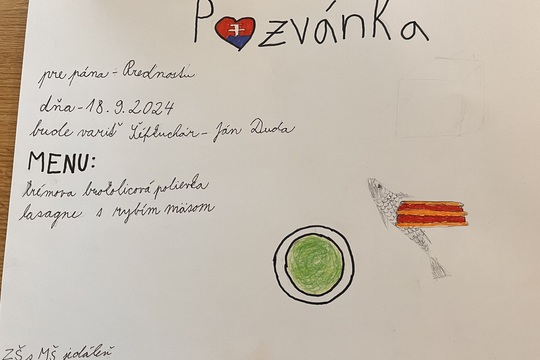 Pozvánka
pre pána - Prednostu
dňa - 18.9.2024
bude variť Šéfkuchár - Ján Duda
MENU:
krémova brokolicová polievka
lasagne s rybím mäsom
ZŠ s MŠ jedáleň